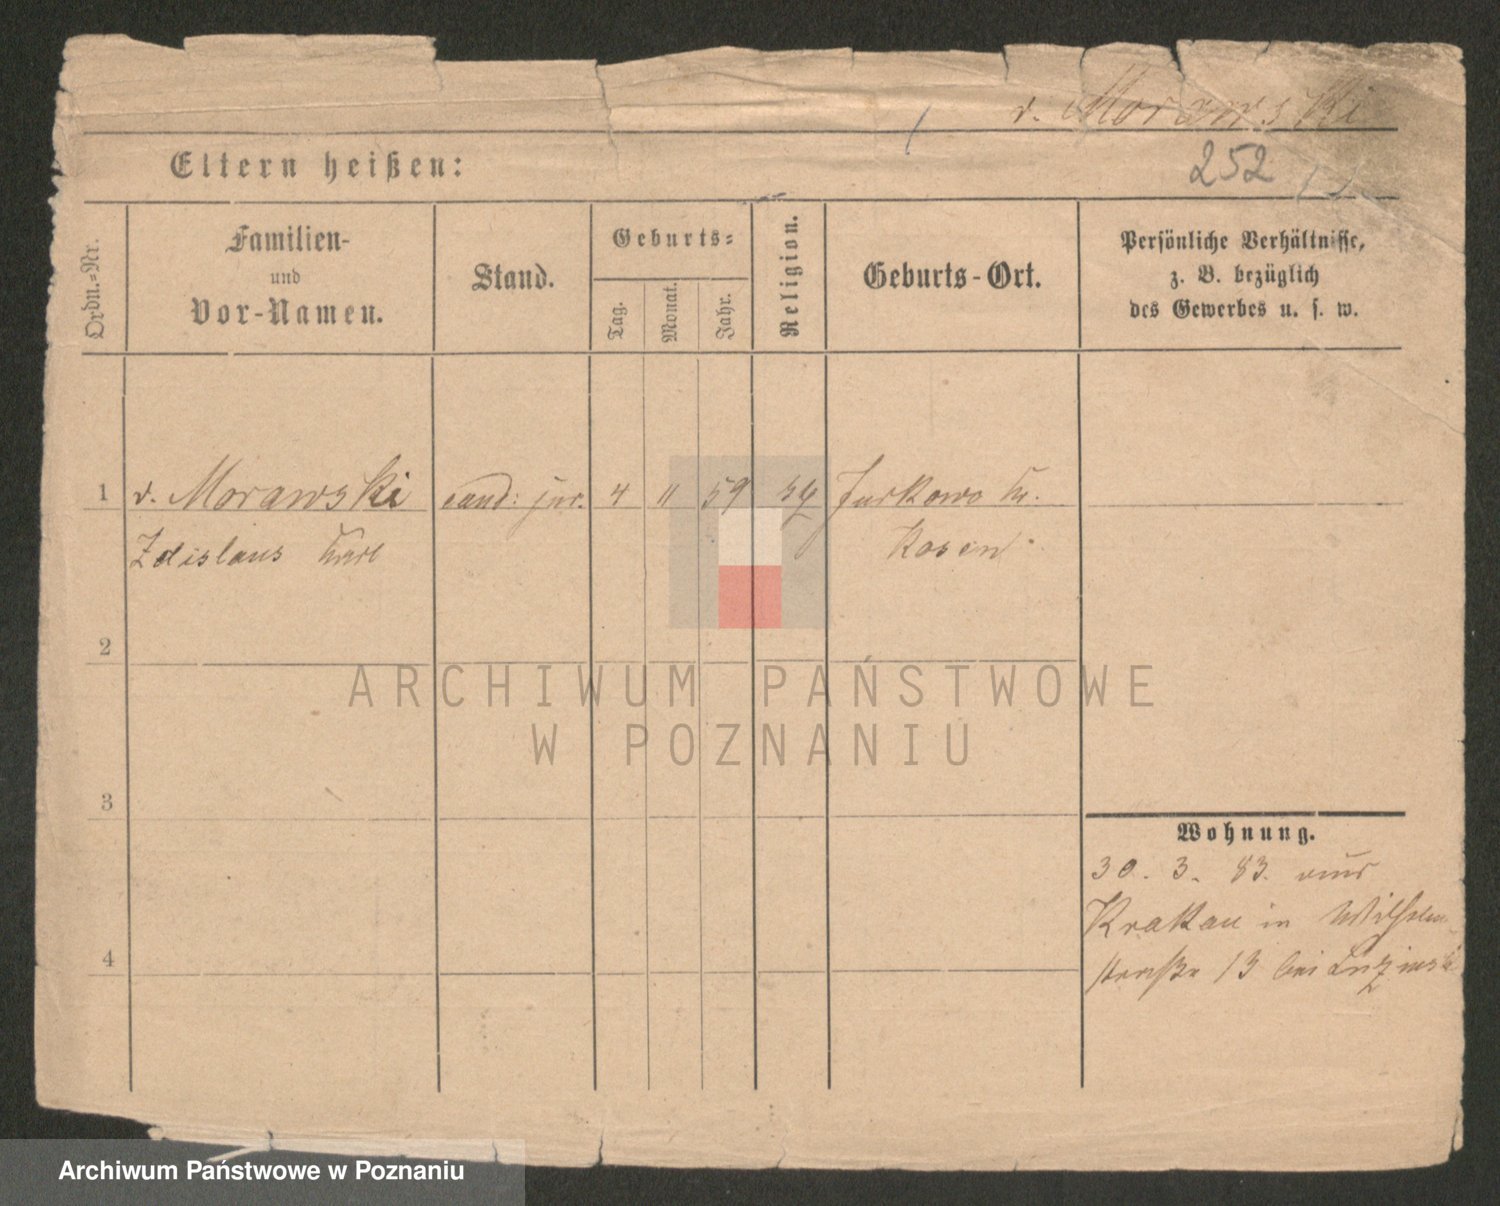 v. Morawski
Eltern heißen:
252
Ordn.-Nr.
Familien-
und
Vor-Namen.
Stand.
Geburts-
Tag.
Monat.
Jahr.
Religion.
Geburts-Ort.
Persönliche Verhältnisse,
z. B. bezüglich
des Gewerbes u. s. w.
1 v. Morawski cand: jur. 4 11 59 Jurkowo Kr.
Zdislaus Karl Kosen
2
ARCHIWUM PAŃSTWOWE
W POZNANIU
3
Wohnung.
30. 3. 83. aus
Krakau in Wilhelm
straße 13 bei
4
Archiwum Państwowe w Poznaniu